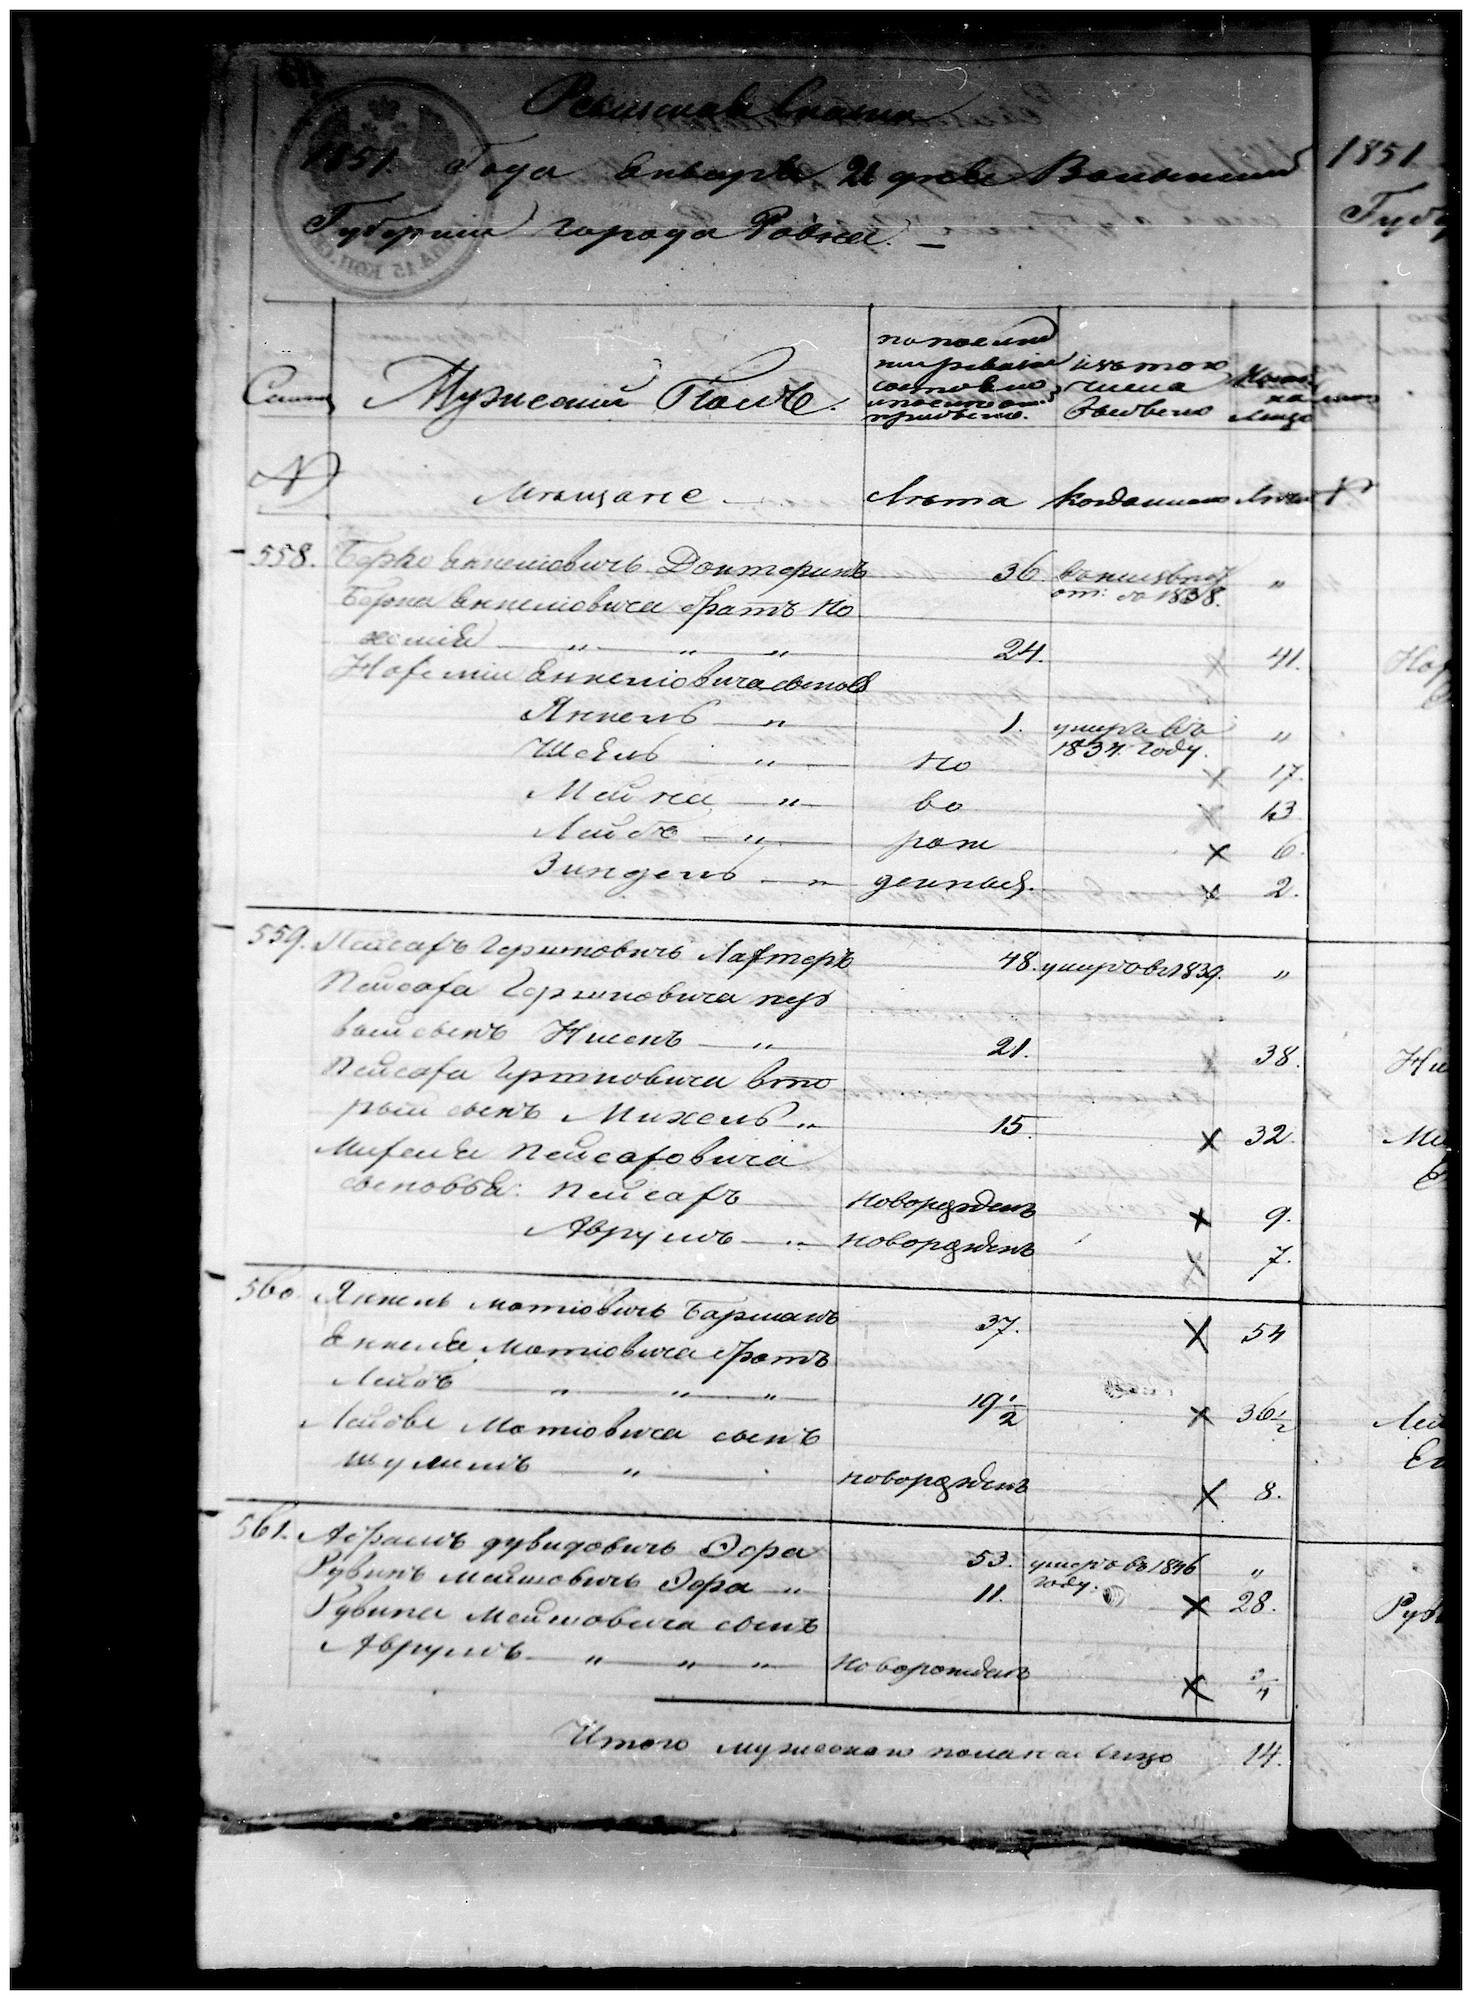 Ревизская сказка
1851. Года Генваря 21 дня Волынской
Губернии города Ровна. —
1851
Губе
Семьи
Мужеской Полъ.
по последней
ревизии
состояло
и после оной
прибыло.
изъ того
числа
выбыло
Ныне
на лицо
№
Мещане
Лета
Когда именно
Лета
№
558. Берко Янкелiовичъ Доктеринъ 36. 
от: до 1838. "
Берка Янкелiовича братъ Но
хемiя " " " 24. × 41.
Нохемiи Янкелiовича сыновья
Янкель " 1. умеръ въ
1834. году. "
Шаель " но × 17.
Мошка " во × 13.
Лейба " рож × 6.
Зиндель " денные. × 2.
559. Пейсахъ Гершковичъ Лахтеръ 48. умеръ в 1839. "
Пейсаха Гершковича пер
вый сынъ Нисенъ " 21. × 38.
Ни
Пейсаха Гершковича вто
рый сынъ Михель " 15. × 32.
Ми
Михеля Пейсаховича
сыновья: Пейсахъ новорожденъ × 9.
Аврумъ " новорожденъ × 7.
560. Янкель Мотiовичъ Бармакъ 37. × 54
Янкеля Мотiовича братъ
Лейба " " " 19 1/2 × 36 1/2
Лей
Лейбы Мотiовича сынъ
Шулимъ " новорожденъ × 8.
561. Абрамъ Дувидовичъ Эфра 53. умеръ въ 1846
году. "
Рувинъ Мошковичъ Эфра " 11. × 28.
Рув
Рувина Мошковича сынъ
Аврумъ " " " Новорожденъ × 3/4
Итого мужеского пола на лицо 14.